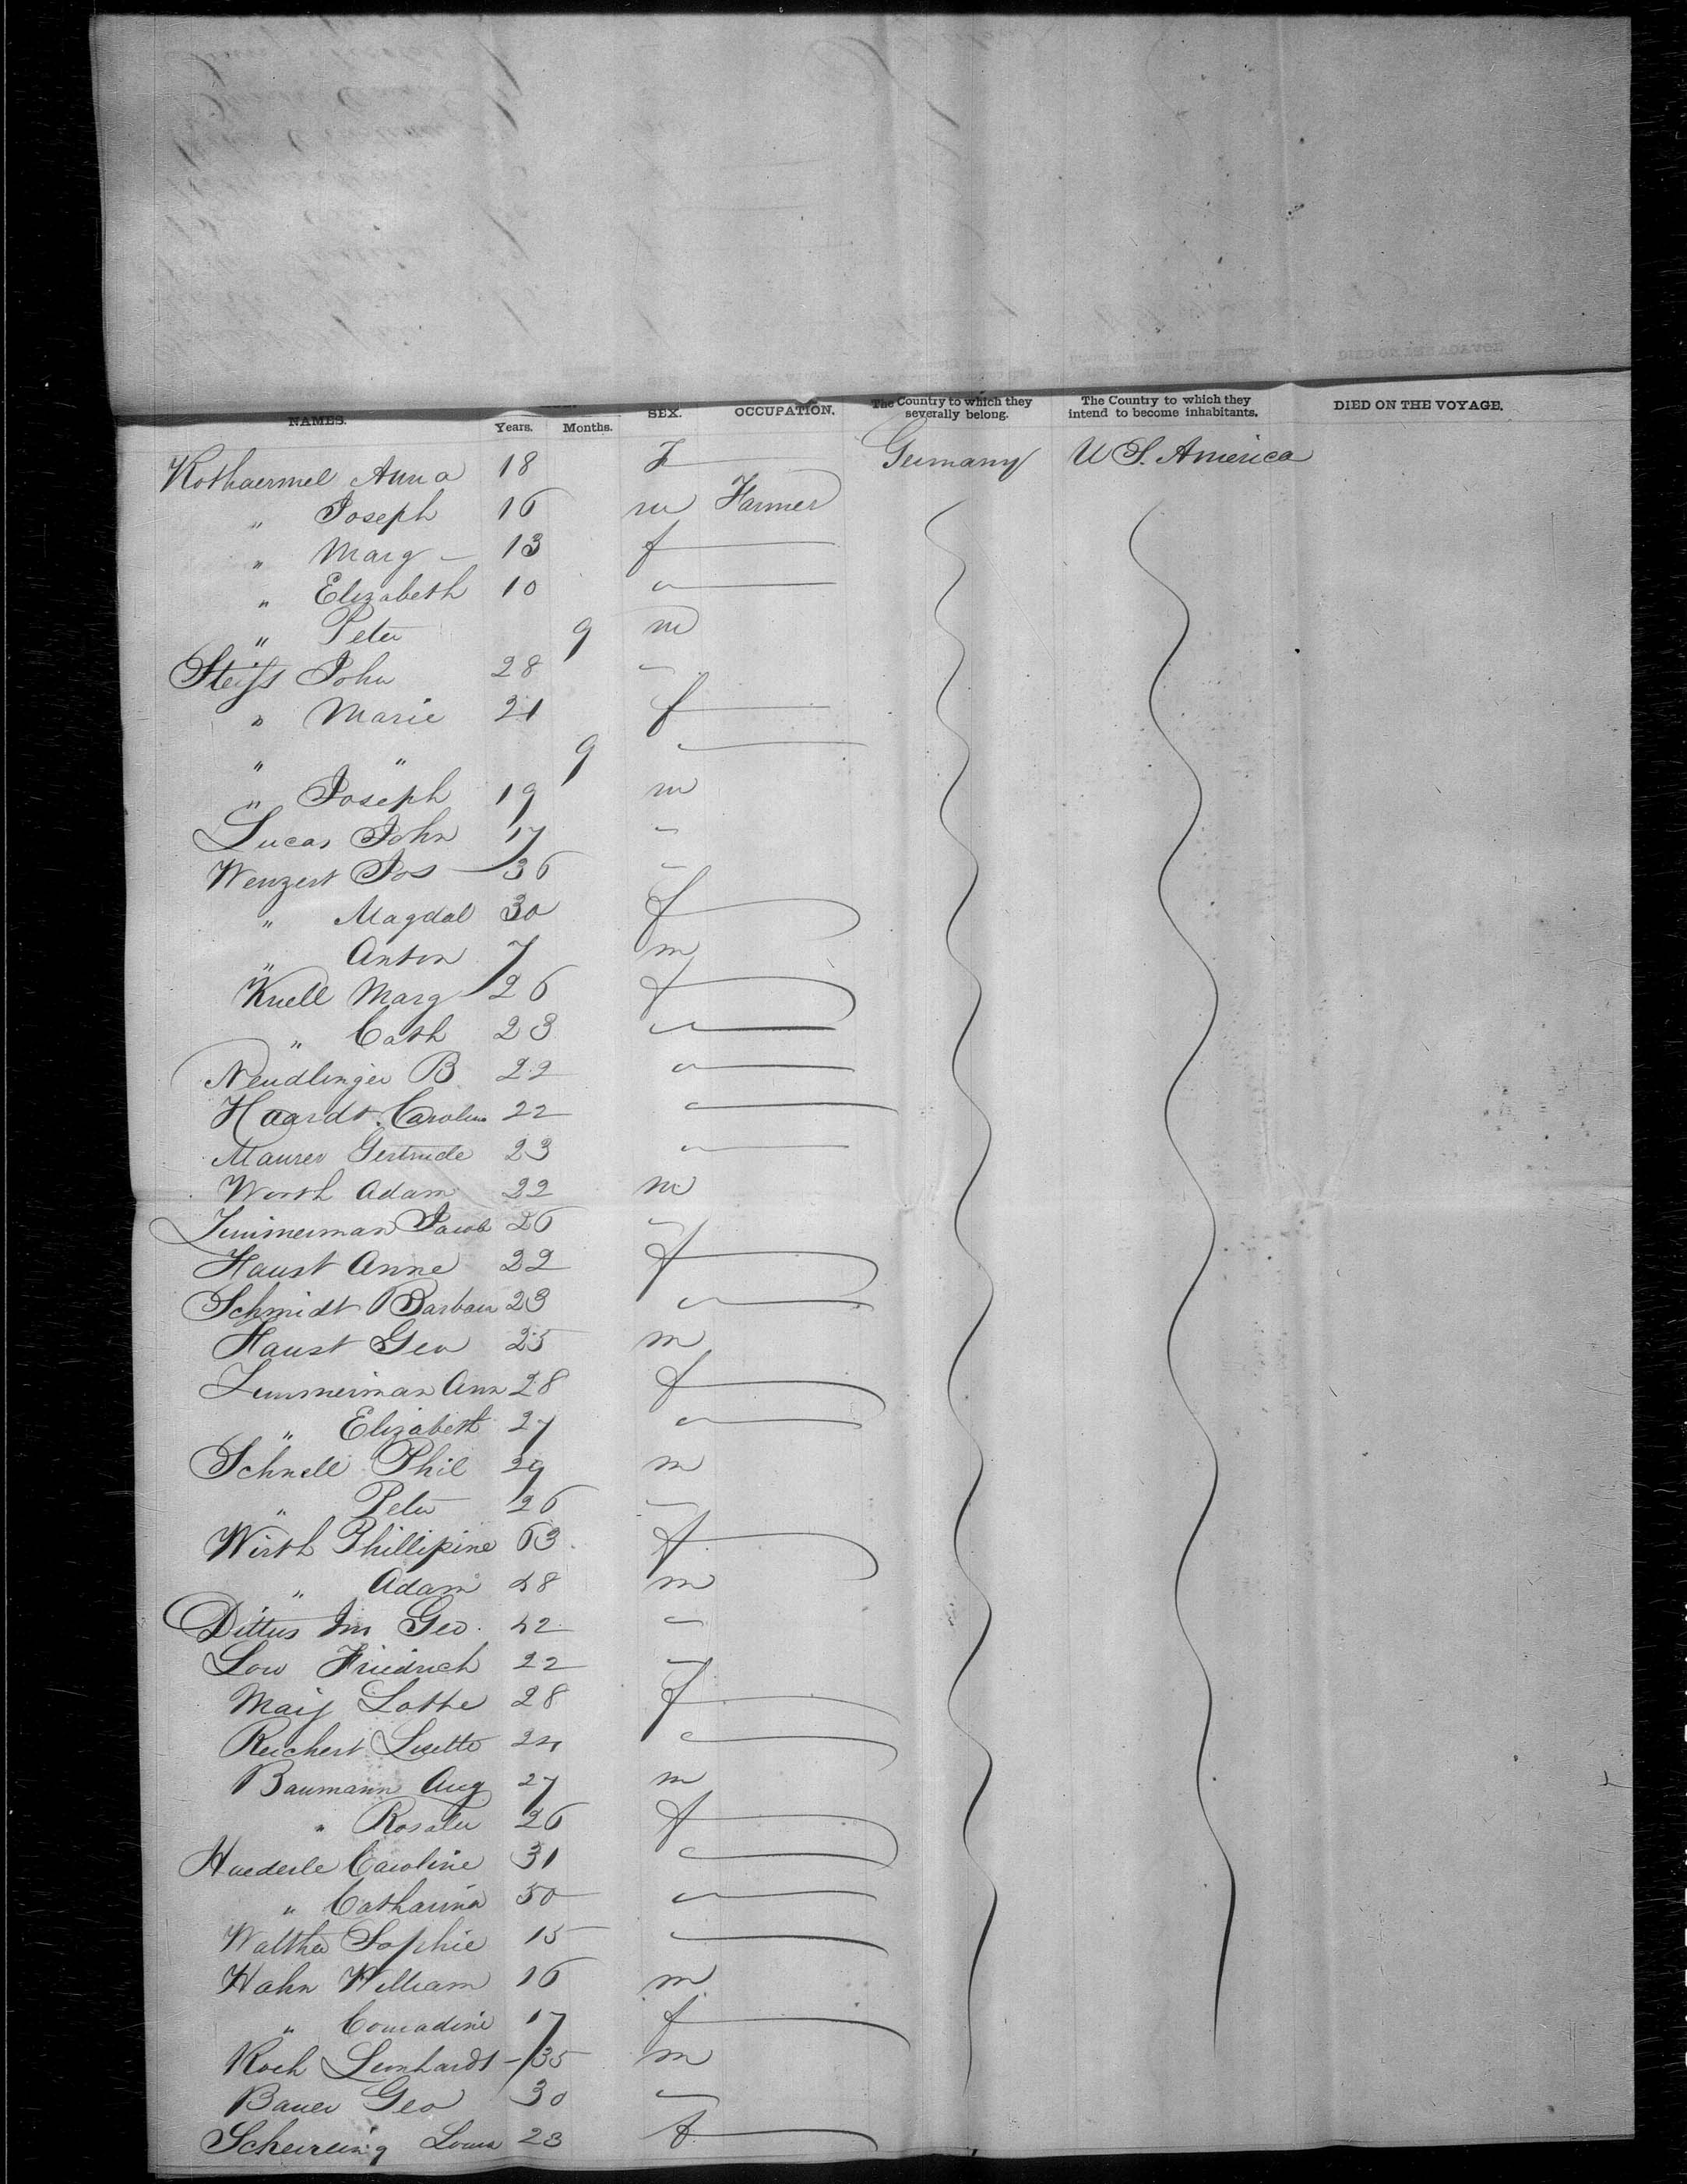 NAMES. Years. Months. SEX. OCCUPATION. The Country to which they severally belong. The Country to which they intend to become inhabitants. DIED ON THE VOYAGE.
Rothaermel Anna 18 F Germany U S. America
" Joseph 16 m Farmer
" Marg 13 f
" Elizabeth 10 "
" Peter 9 m
Steifs John 28 "
" Marie 21 f
" " 9 "
" Joseph 19 m
Lucas John 17 "
Wenzert Jos 36 "
" Magdal 30 f
" Anton 7 m
Knell Marg 26 f
" Cath 23 "
Neudlinger B 22 "
Haardt Carolin 22 "
Maurer Gertrude 23 "
Worth Adam 22 m
Zimmerman Jacob 26 "
Haust Anne 22 f
Schmidt Barbara 23 "
Haust Geo 25 m
Zimmerman Ann 28 f
" Elizabeth 27 "
Schnell Phil 29 m
" Peter 26 "
Wirth Phillipine 63 f
" Adam 28 m
Dittus Geo. 42 "
Low Friedrich 22 "
Maij Lotte 28 f
Reichert Lisette 24 "
Baumann Aug 27 m
" Rosalie 26 f
Haederle Caroline 31 "
" Catharina 50 "
Walther Sophie 15 "
Hahn William 16 m
" Conradine 17 f
Koch Leonhardt 35 m
Bauer Geo 30 "
Scheireing Louis 23 f